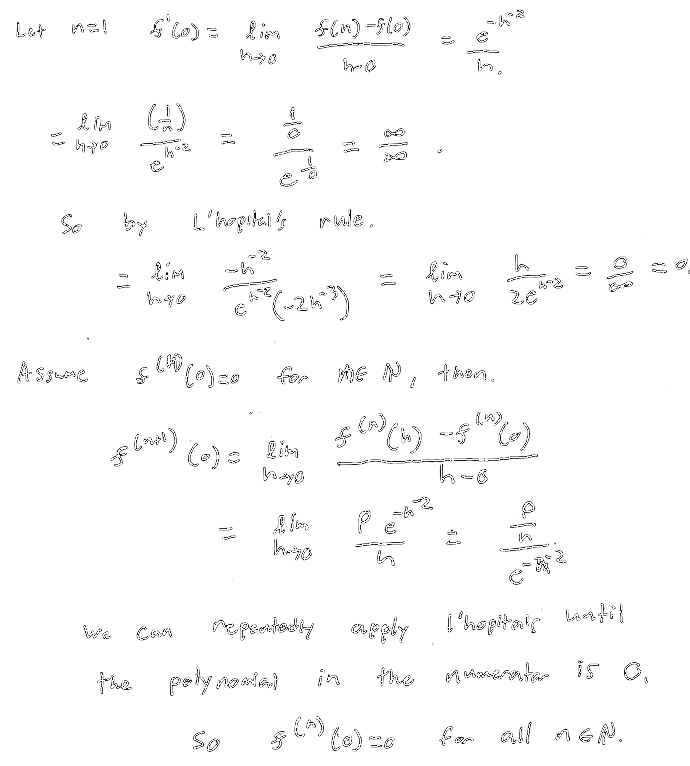 Let n=1 f'(0) = lim h→0 (f(h)-f(0))/(h-0) = e^{-h^{-2}}/h.
= lim h→0 (1/h)/e^{h^{-2}} = (1/0)/e^{1/0} = ∞/∞.
So by L'hopital's rule.
= lim h→0 -h^{-2}/(e^{h^{-2}}(-2h^{-3})) = lim h→0 h/(2e^{h^{-2}}) = 0/∞ = 0.
Assume f^{(n)}(0)=0 for n∈ℕ, then.
f^{(n+1)}(0) = lim h→0 (f^{(n)}(h) - f^{(n)}(0))/(h-0)
= lim h→0 (P e^{-h^{-2}})/h = (P/h)/e^{-h^{-2}}
We can repeatedly apply l'hopitals until
the polynomial in the numerator is 0.
So f^{(n)}(0)=0 for all n∈ℕ.